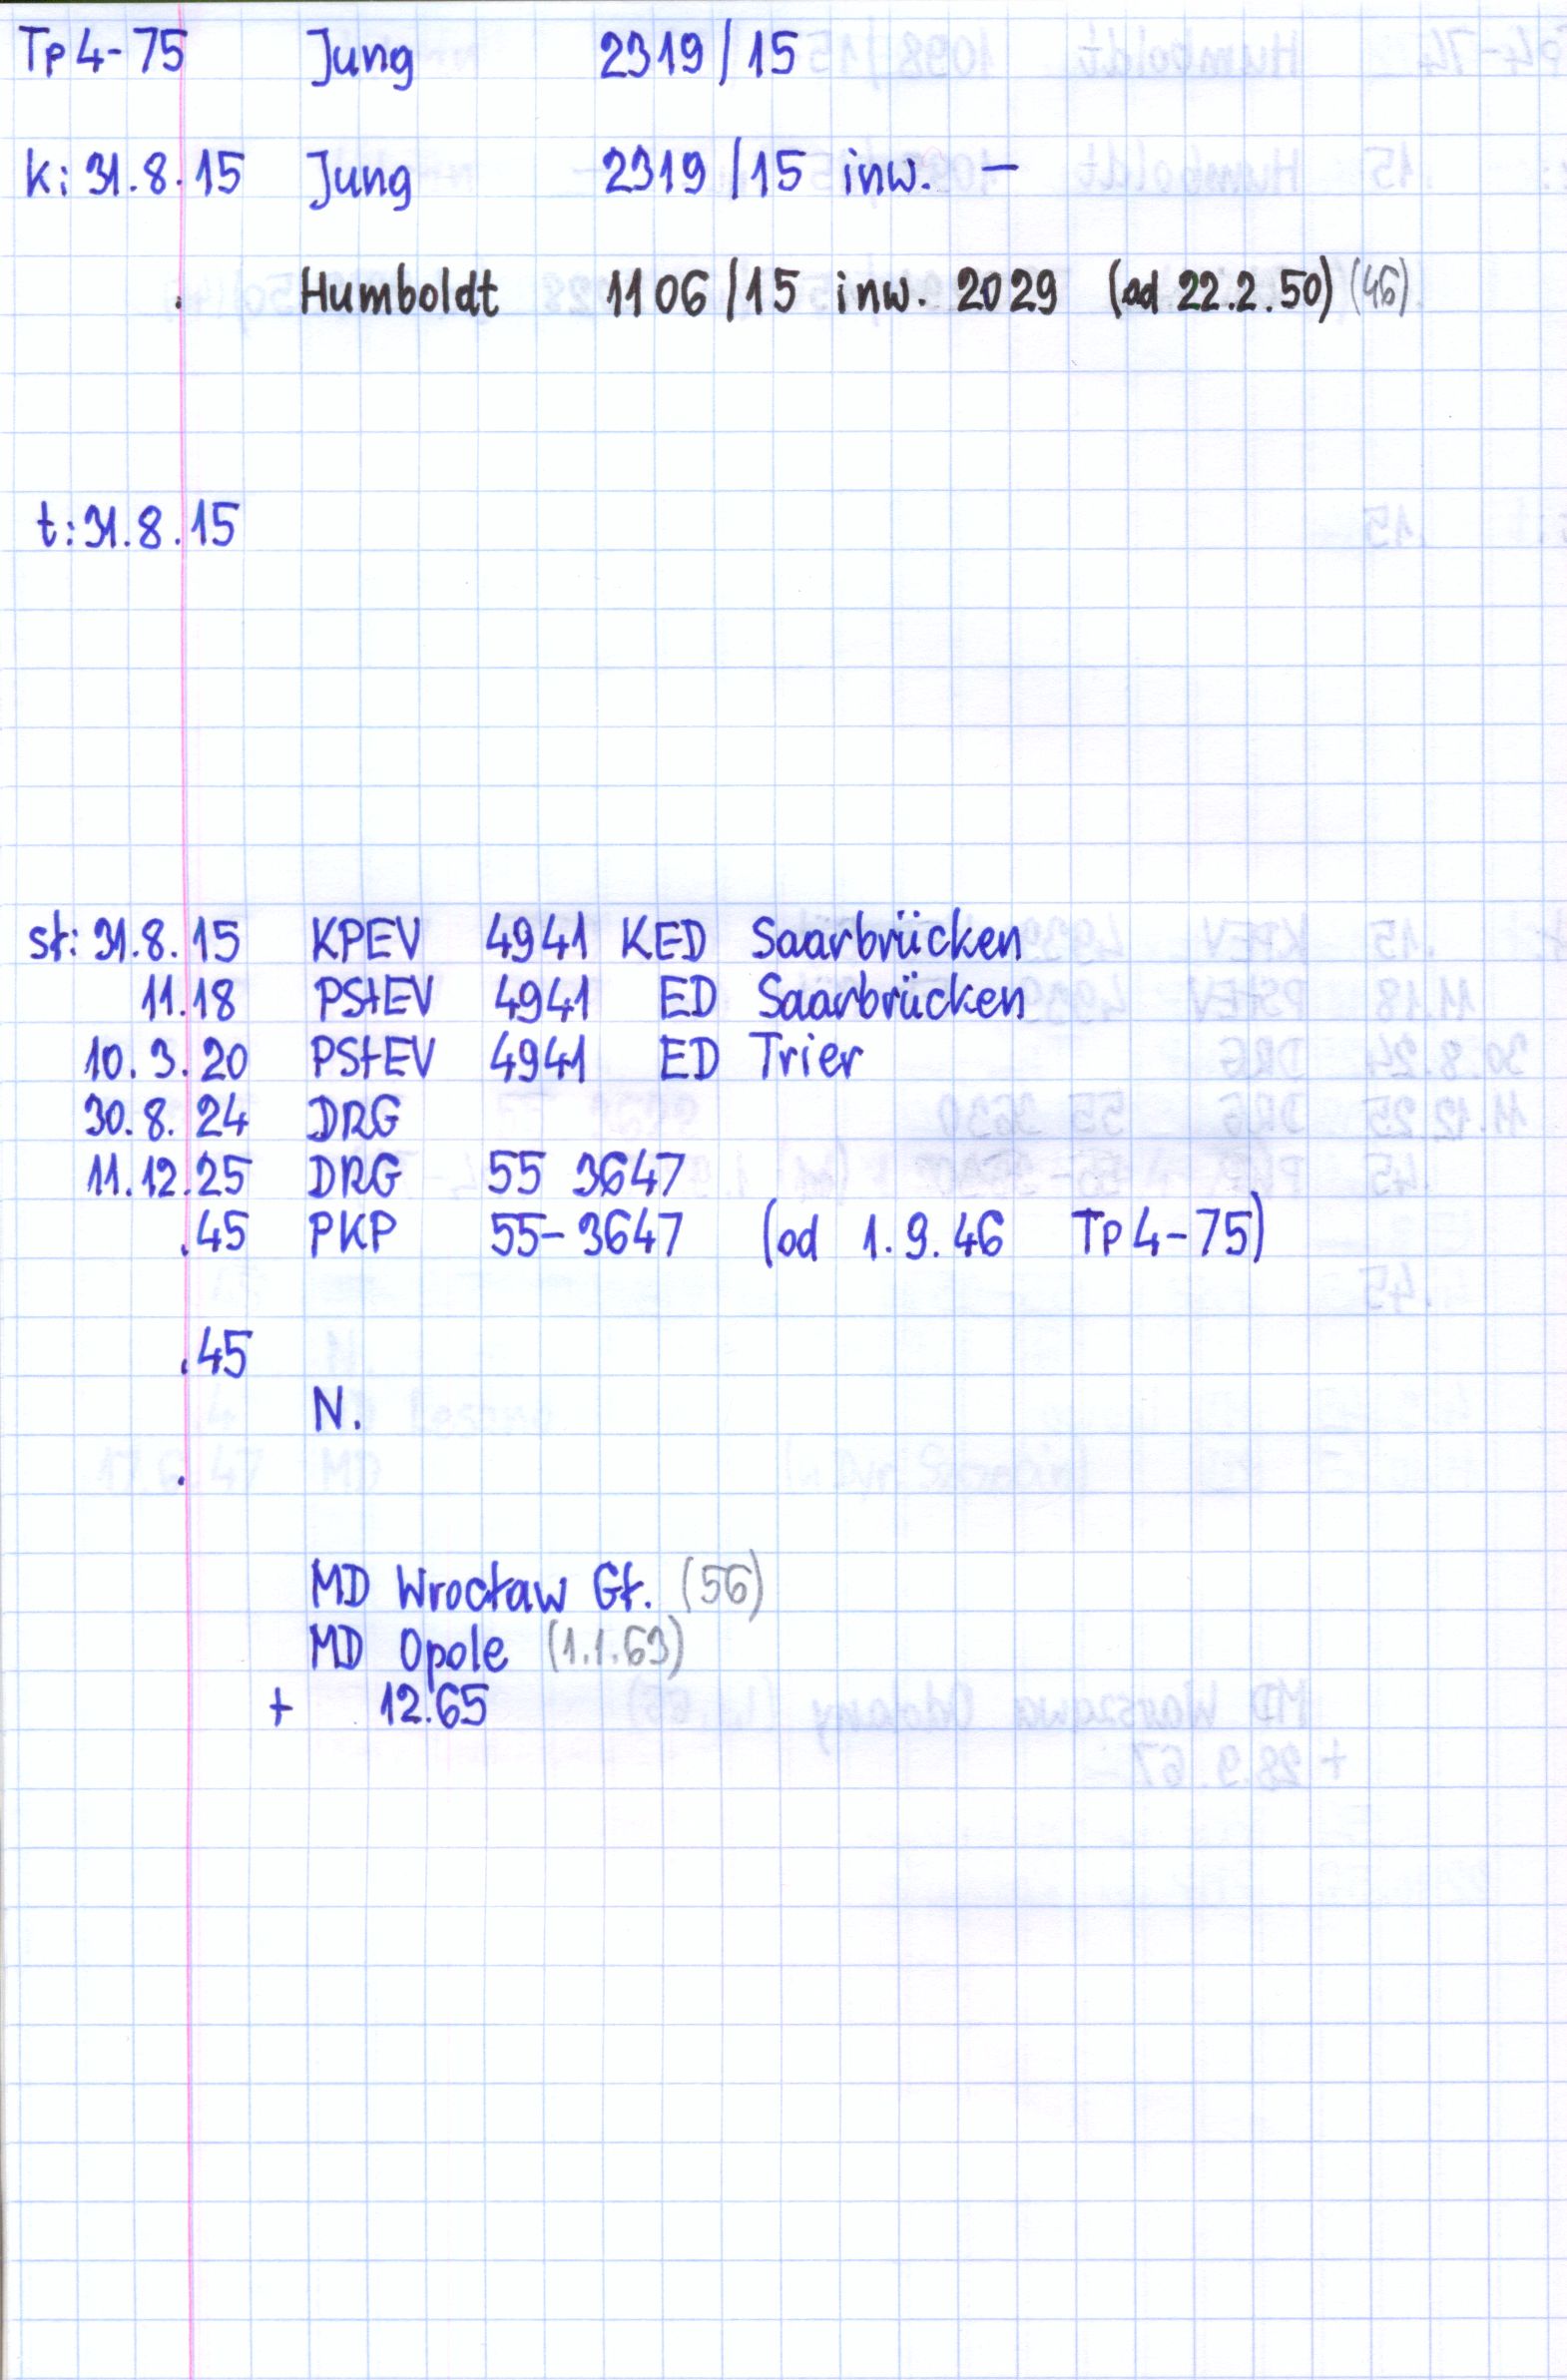 Tp4-75 Jung 2319/15
k: 31.8.15 Jung 2319/15 inw. –
. Humboldt 1106/15 inw. 2029 (od 22.2.50) (46)
t: 31.8.15
st: 31.8.15 KPEV 4941 KED Saarbrücken
11.18 PStEV 4941 ED Saarbrücken
10.3.20 PStEV 4941 ED Trier
30.8.24 DRG
11.12.25 DRG 55 3647
.45 PKP 55-3647 (od 1.9.46 Tp4-75)
.45
N.
.
MD Wrocław Gł. (56)
MD Opole (1.1.63)
+ 12.65